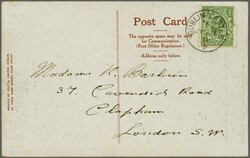 Post Card
The opposite space may be used
for Communication.
(Post Office Regulation.)
Address only below.
Madame K.
37. Cavendish Road
Clapham
London S.W.